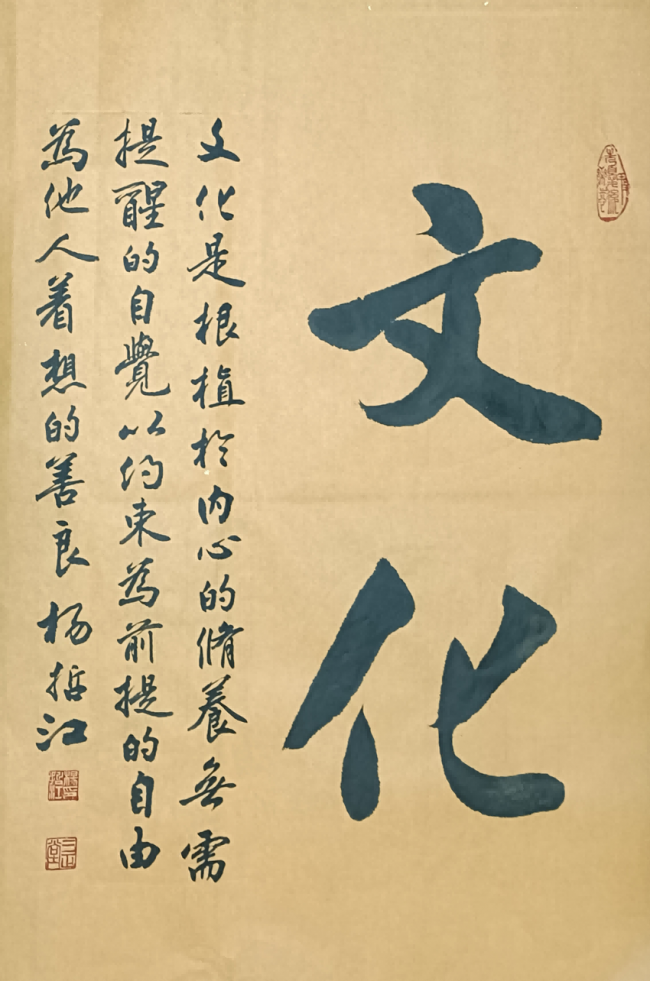 文化
文化是根植於内心的脩養無需
提醒的自覺以約束為前提的自由
為他人着想的善良 杨哲江